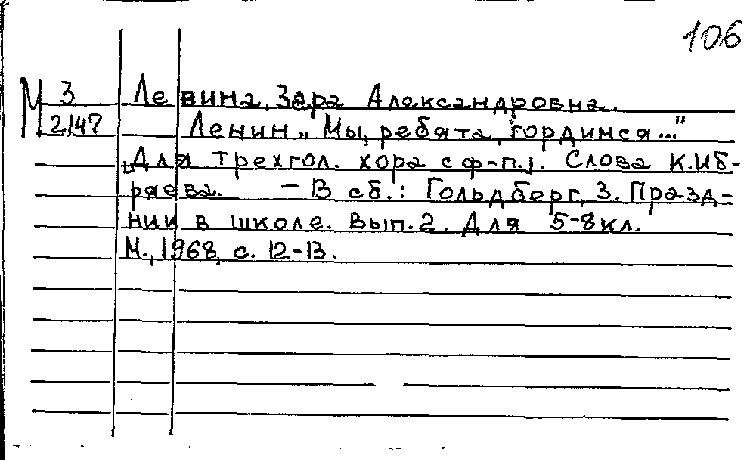 106
М 3 Левина, Зара Александровна.
2147 Ленин „Мы, ребята, гордимся..."
[Для трехгол. хора с ф-п.]. Слова К. Иб-
ряева. — В сб.: Гольдберг, З. Празд-
ники в школе. Вып. 2. Для 5-8 кл.
М., 1968, с. 12-13.